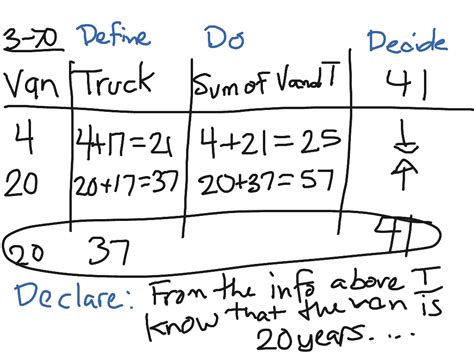 3-70 Define Do Decide
Van Truck Sum of V and T 41
4 4+17=21 4+21=25 ↓
20 20+17=37 20+37=57 ↑
20 37 41
Declare: From the info above I
know that the van is
20 years....